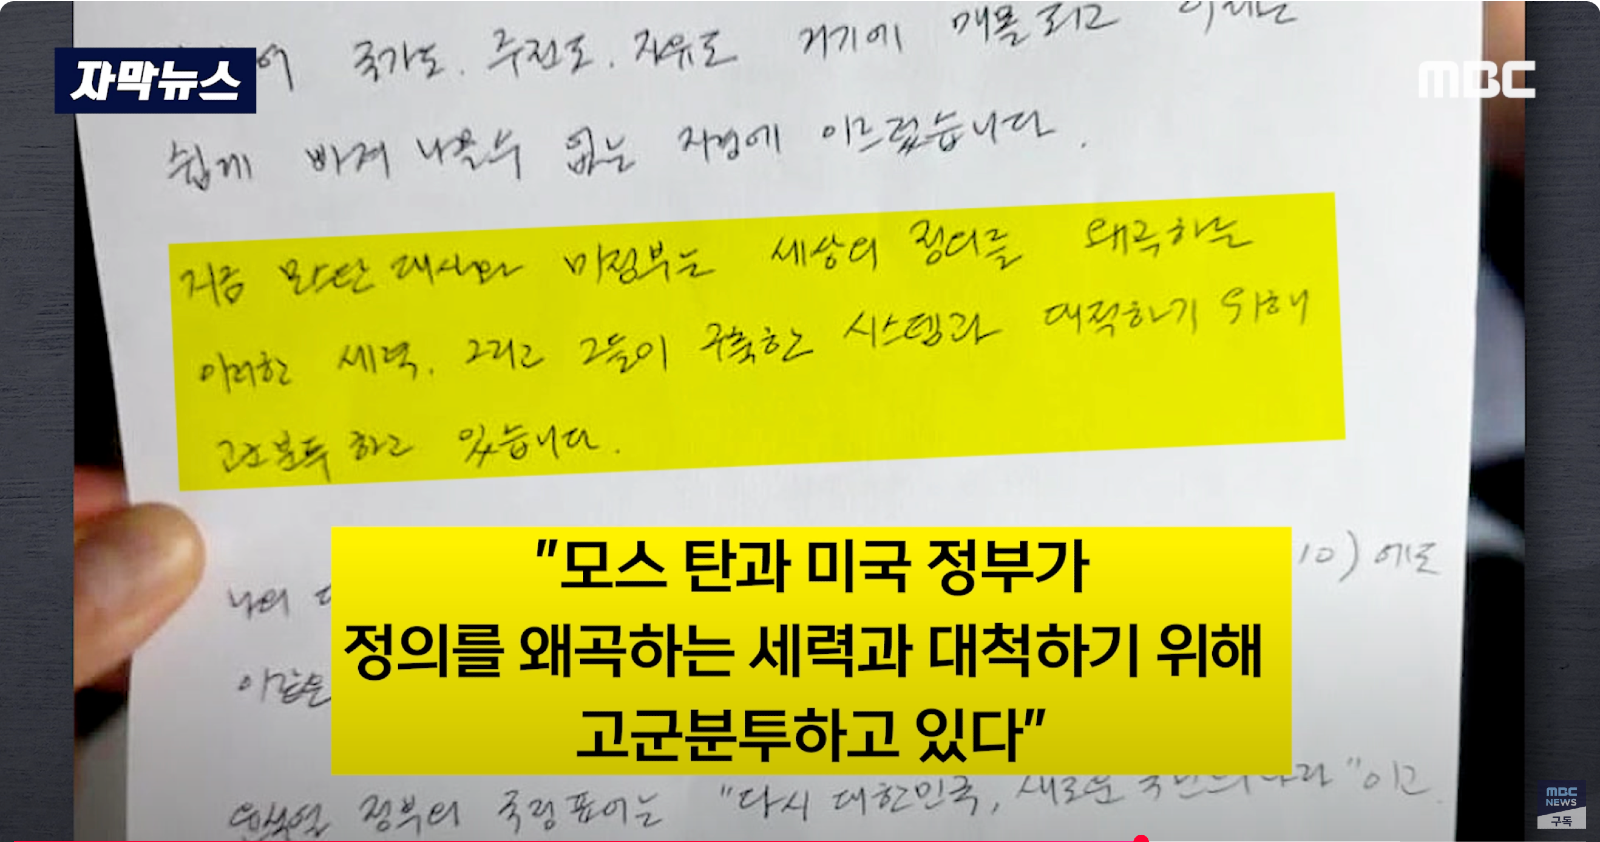 자막뉴스
MBC
국가도, 주권도, 자유도 거기에 매몰되고 이제는
쉽게 빠져 나올 수 없는 지경에 이르렀습니다.
지금 모스탄 대사와 미정부는 세상의 정의를 왜곡하는
이러한 세력, 그리고 그들이 구축한 시스템과 대적하기 위해
고군분투 하고 있습니다.
"모스 탄과 미국 정부가
정의를 왜곡하는 세력과 대척하기 위해
고군분투하고 있다"
10) 에도
나의
이 같은
윤석열 정부의 국정 표어는 "다시 대한민국, 새로운 국민의 나라" 이고
MBC
NEWS
구독